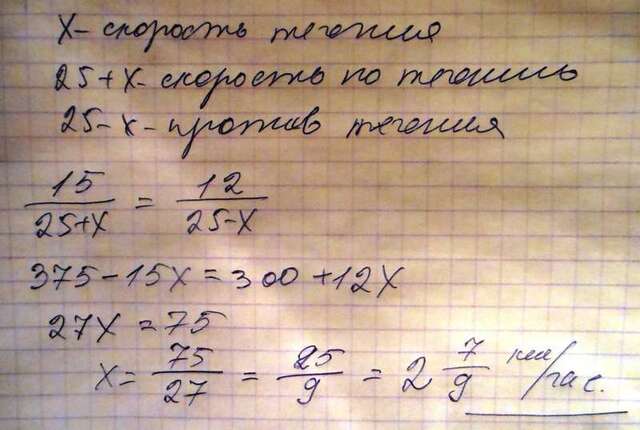 х - скорость течения
25+х - скорость по течению
25-х - против течения
15/(25+х) = 12/(25-х)
375-15х=300+12х
27х=75
х= 75/27 = 25/9 = 2 7/9 км/час.